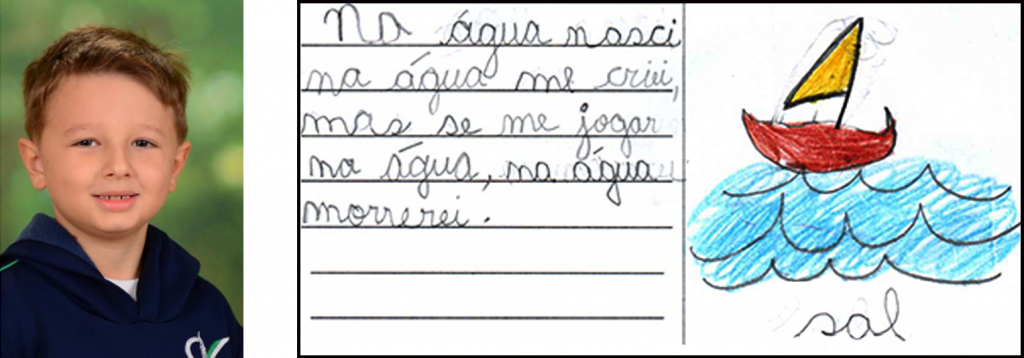 Na água nasci
na água me criei,
mas se me jogar
na água, na água
morrerei.
sal